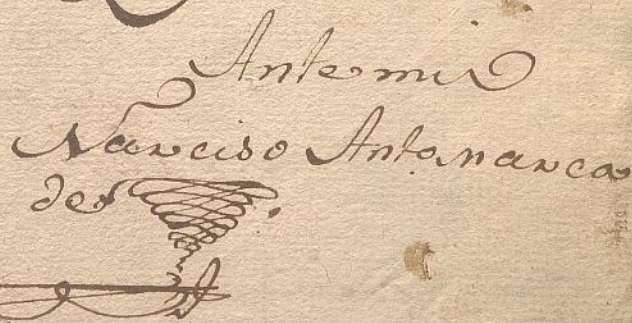 Ante mi
Narciso Anto naarca
des